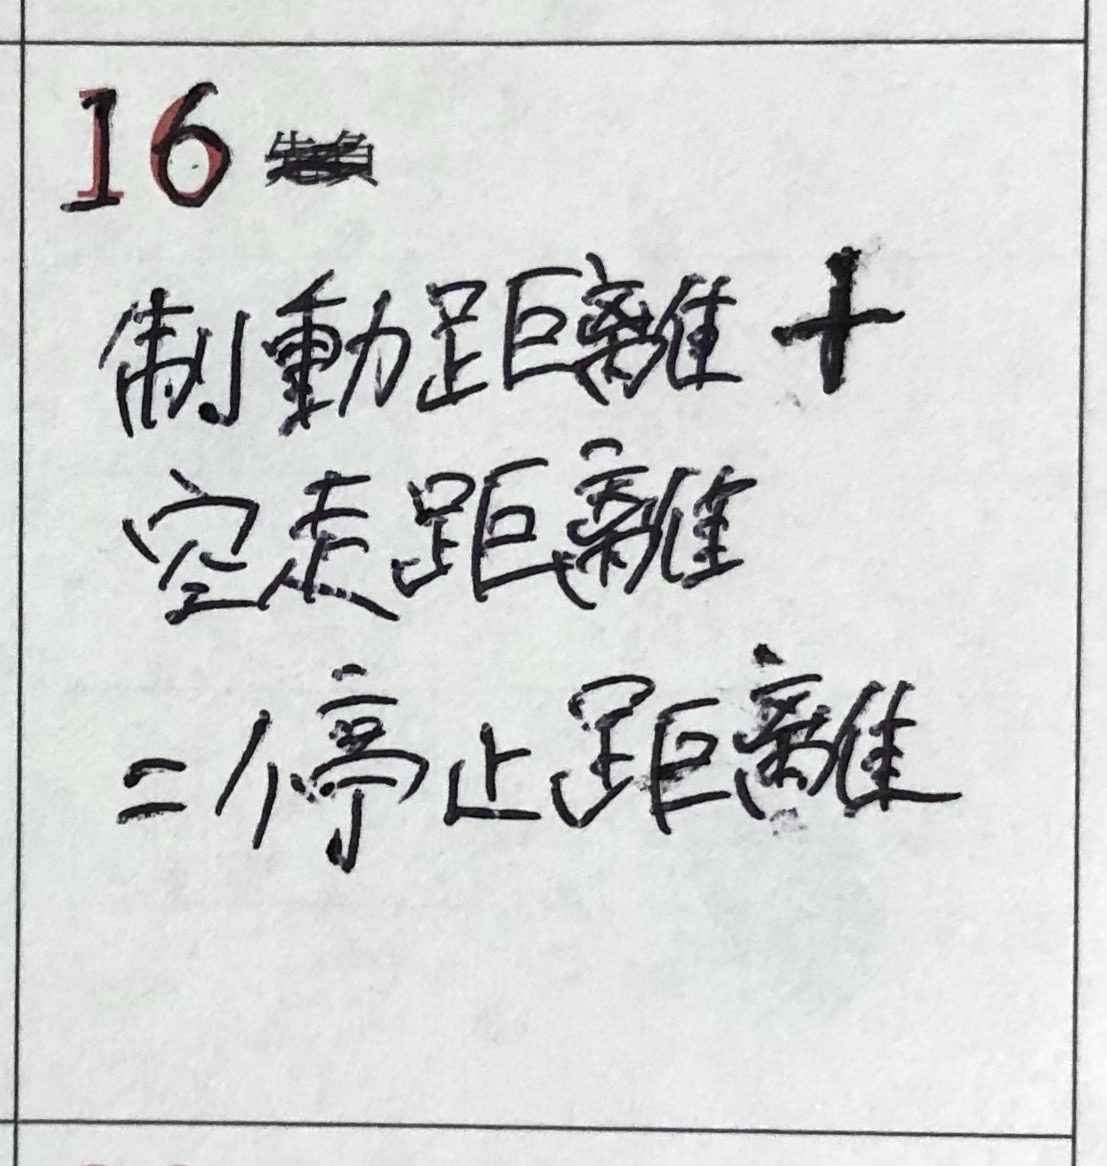 16
制動距離+
空走距離
=停止距離